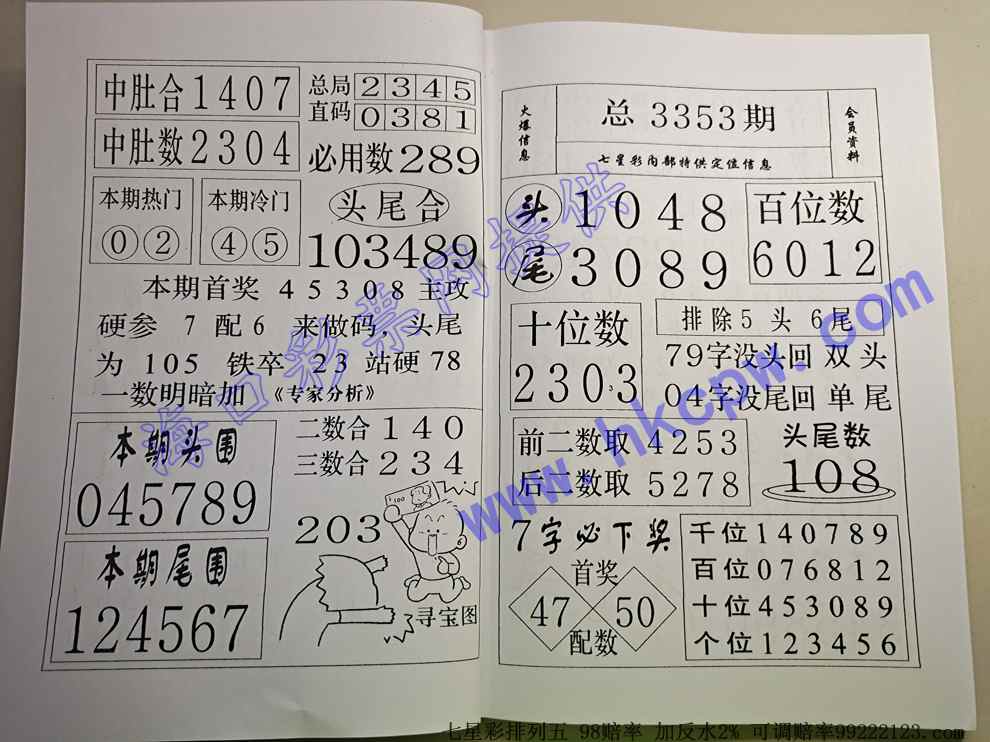 中肚合1407
总局 2345
直码 0381
中肚数2304
必用数289
本期热门
0 2
本期冷门
4 5
头尾合
103489
本期首奖 45308主攻
硬参 7 配6 来做码,头尾
为 105 铁卒 23 站硬78
一数明暗加 《专家分析》
本期头围
045789
二数合140
三数合234
203
100
寻宝图
本期尾围
124567
火爆信息
总 3353期
七星彩内部特供定位信息
会员资料
头 1048
尾 3089
百位数
6012
十位数
2303
排除5 头 6尾
79字没头回 双 头
04字没尾回 单 尾
前二数取 4253
后二数取 5278
头尾数
108
7字必下奖
首奖
47 50
配数
千位140789
百位076812
十位453089
个位123456
海口彩票网提供
www.hkcpw.com
七星彩排列五 98赔率 加反水2% 可调赔率99222123.com